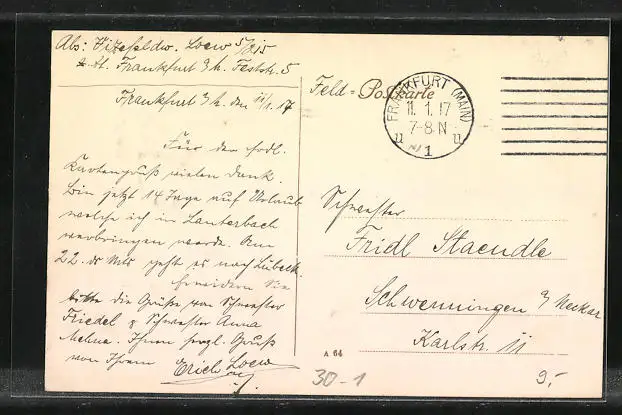 Abs: Vizefeldw. Loew 5/815
z. Zt. Frankfurt a/M. Feststr. 5
Frankfurt a/M. den 11/1. 17
Für den frdl.
Kartengruß vielen Dank.
Bin jetzt 14 Tage auf Urlaub
welche ich in Lauterbach
verbringen werde. Am
22. ds Mts geht es nach Lübeck.
Erwidern Sie
bitte die Grüße von Schwester
Friedel & Schwester Anna
Ihnen herzl. Gruß
von Ihrem Erich Loew
Feld=Postkarte
FRANKFURT (MAIN)
11. 1. 17
7-8 N
1
Schwester
Fridl Staendle
Schwenningen a/Neckar
Karlstr. 11
A 64
30-1
9,-